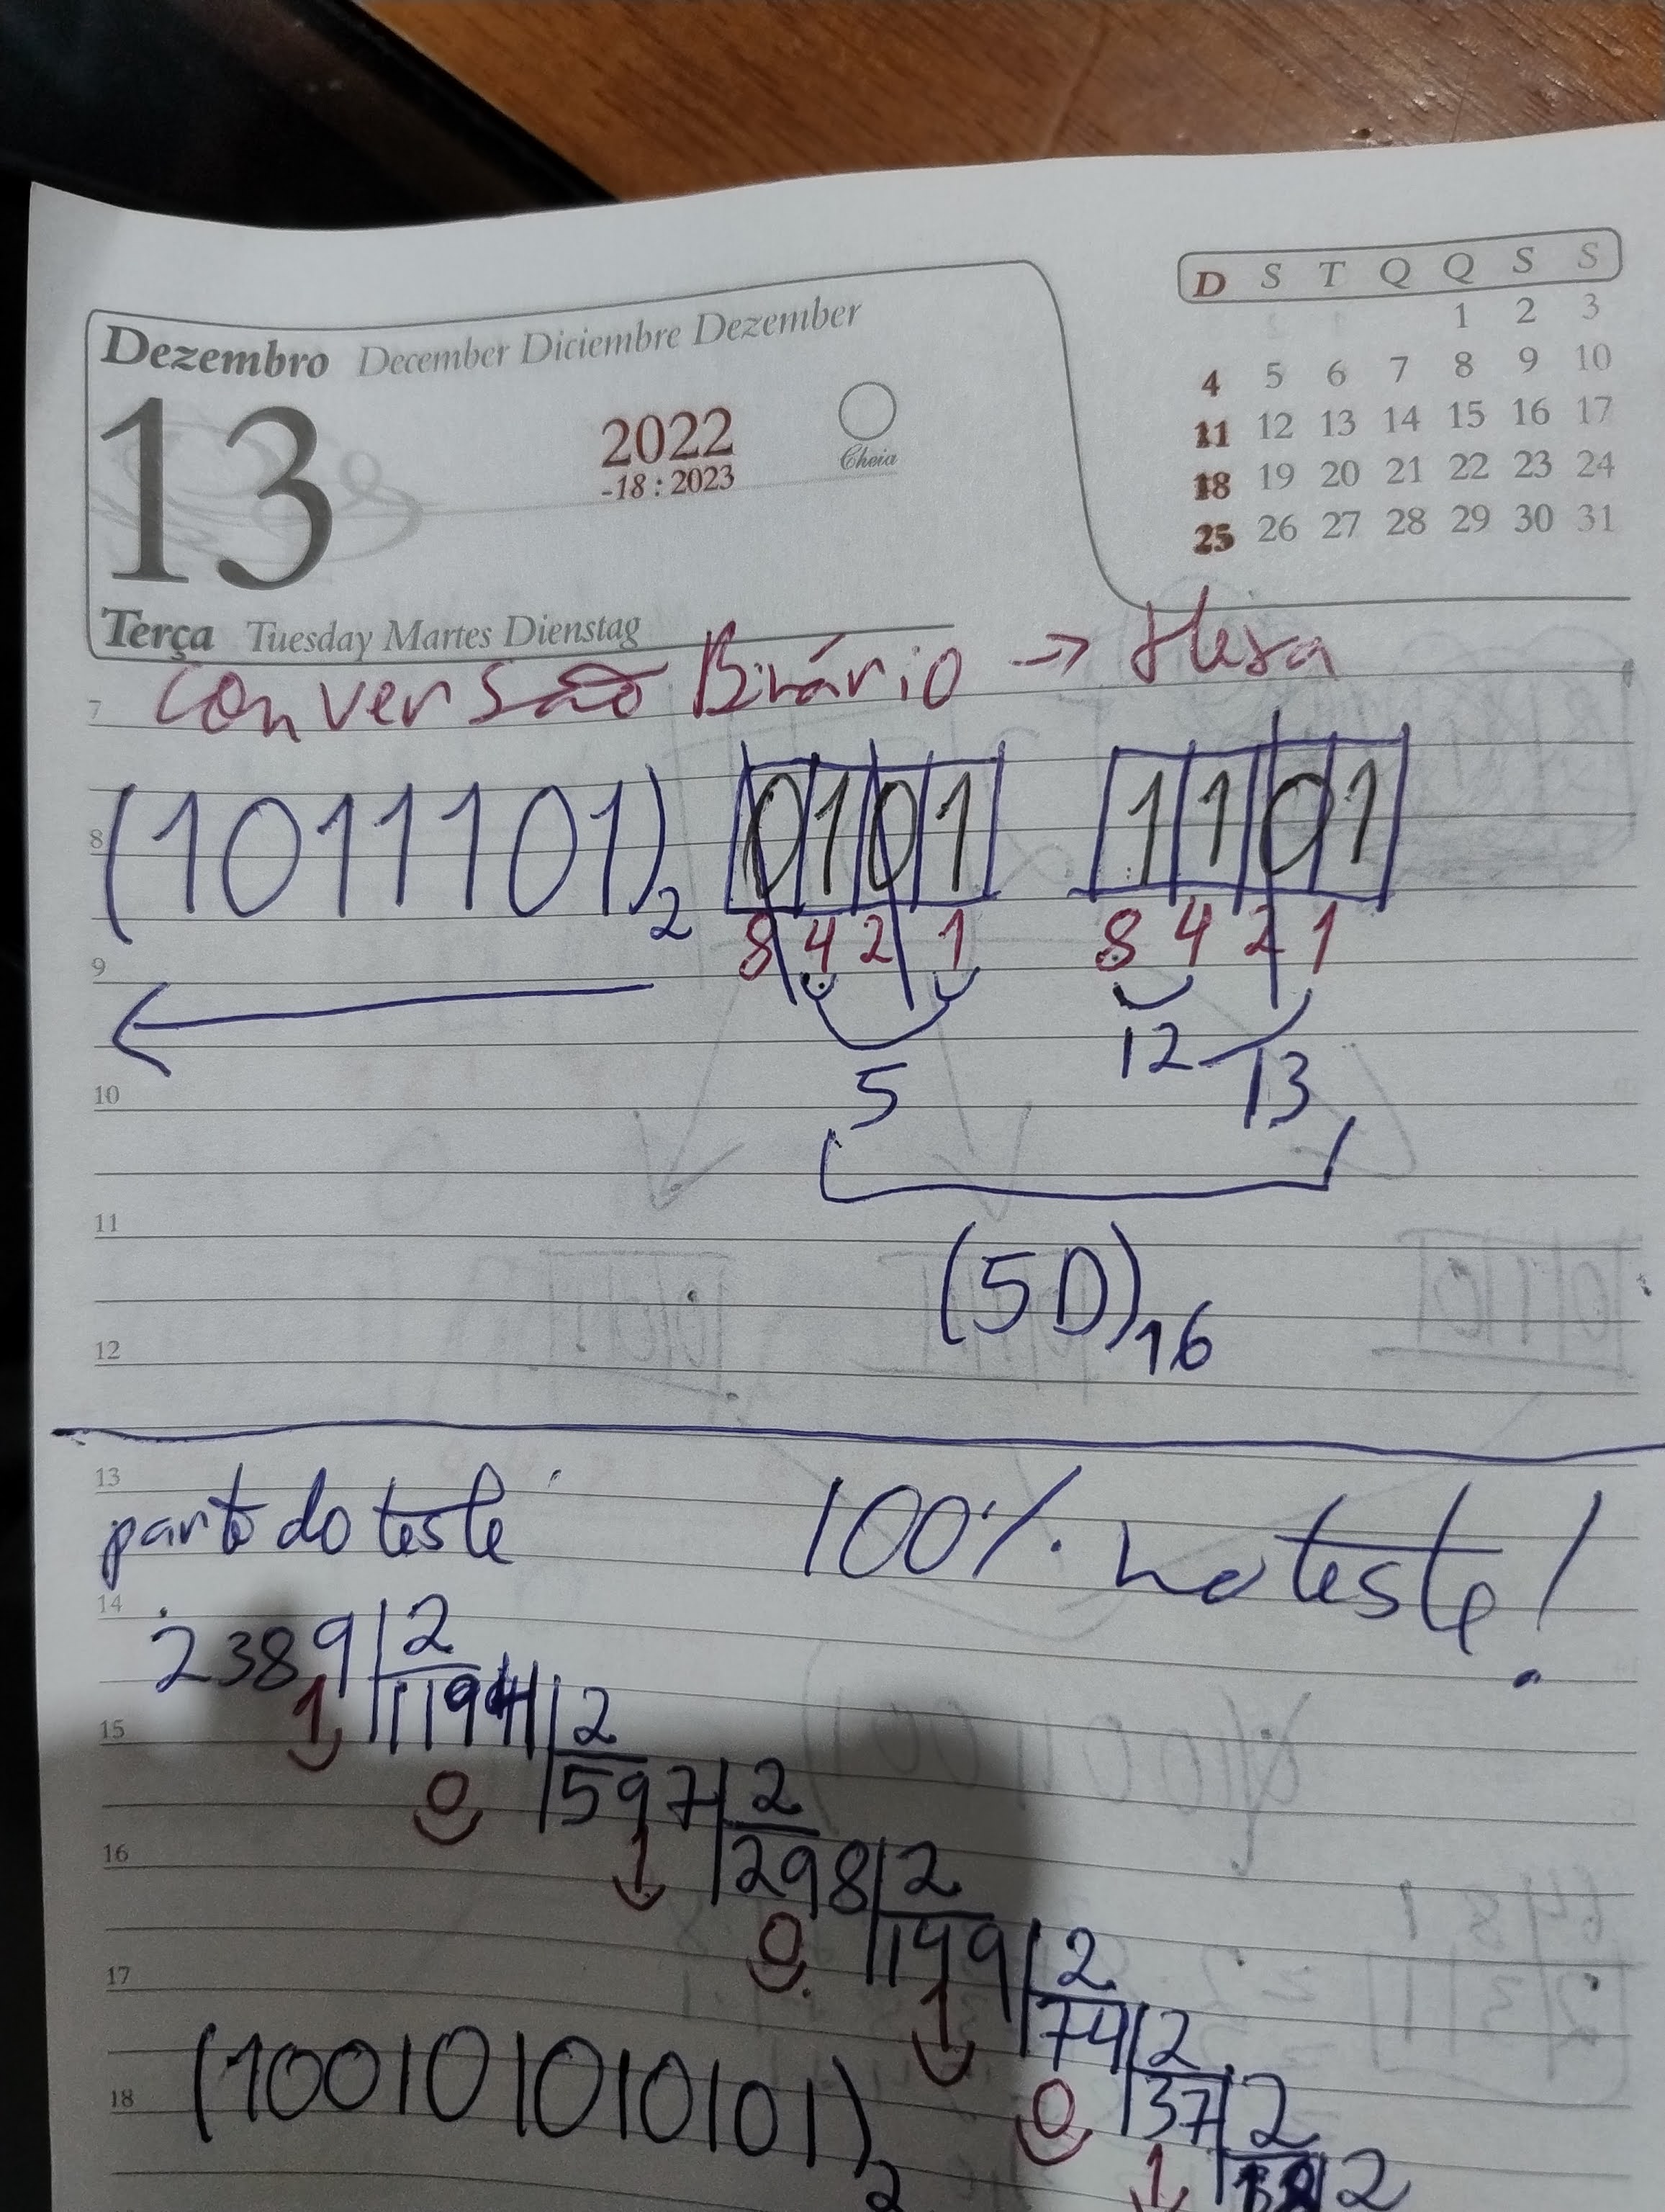 D S T Q Q S S
1 2 3
4 5 6 7 8 9 10
11 12 13 14 15 16 17
18 19 20 21 22 23 24
25 26 27 28 29 30 31
Dezembro December Diciembre Dezember
13
2022
-18 : 2023
Cheia
Terça Tuesday Martes Dienstag
Conversão Binário → Hexa
7
8
(1011101)2 0101 1101
8 4 2 1 8 4 2 1
9
5 12 13
10
11
(5D)16
12
13
parte do teste 100% no teste!
14
2389 | 2
1 1194 | 2
15
0 597 | 2
16
1 298 | 2
0 149 | 2
17
1 74 | 2
18
(100101010101)2
0 37 | 2
1 2